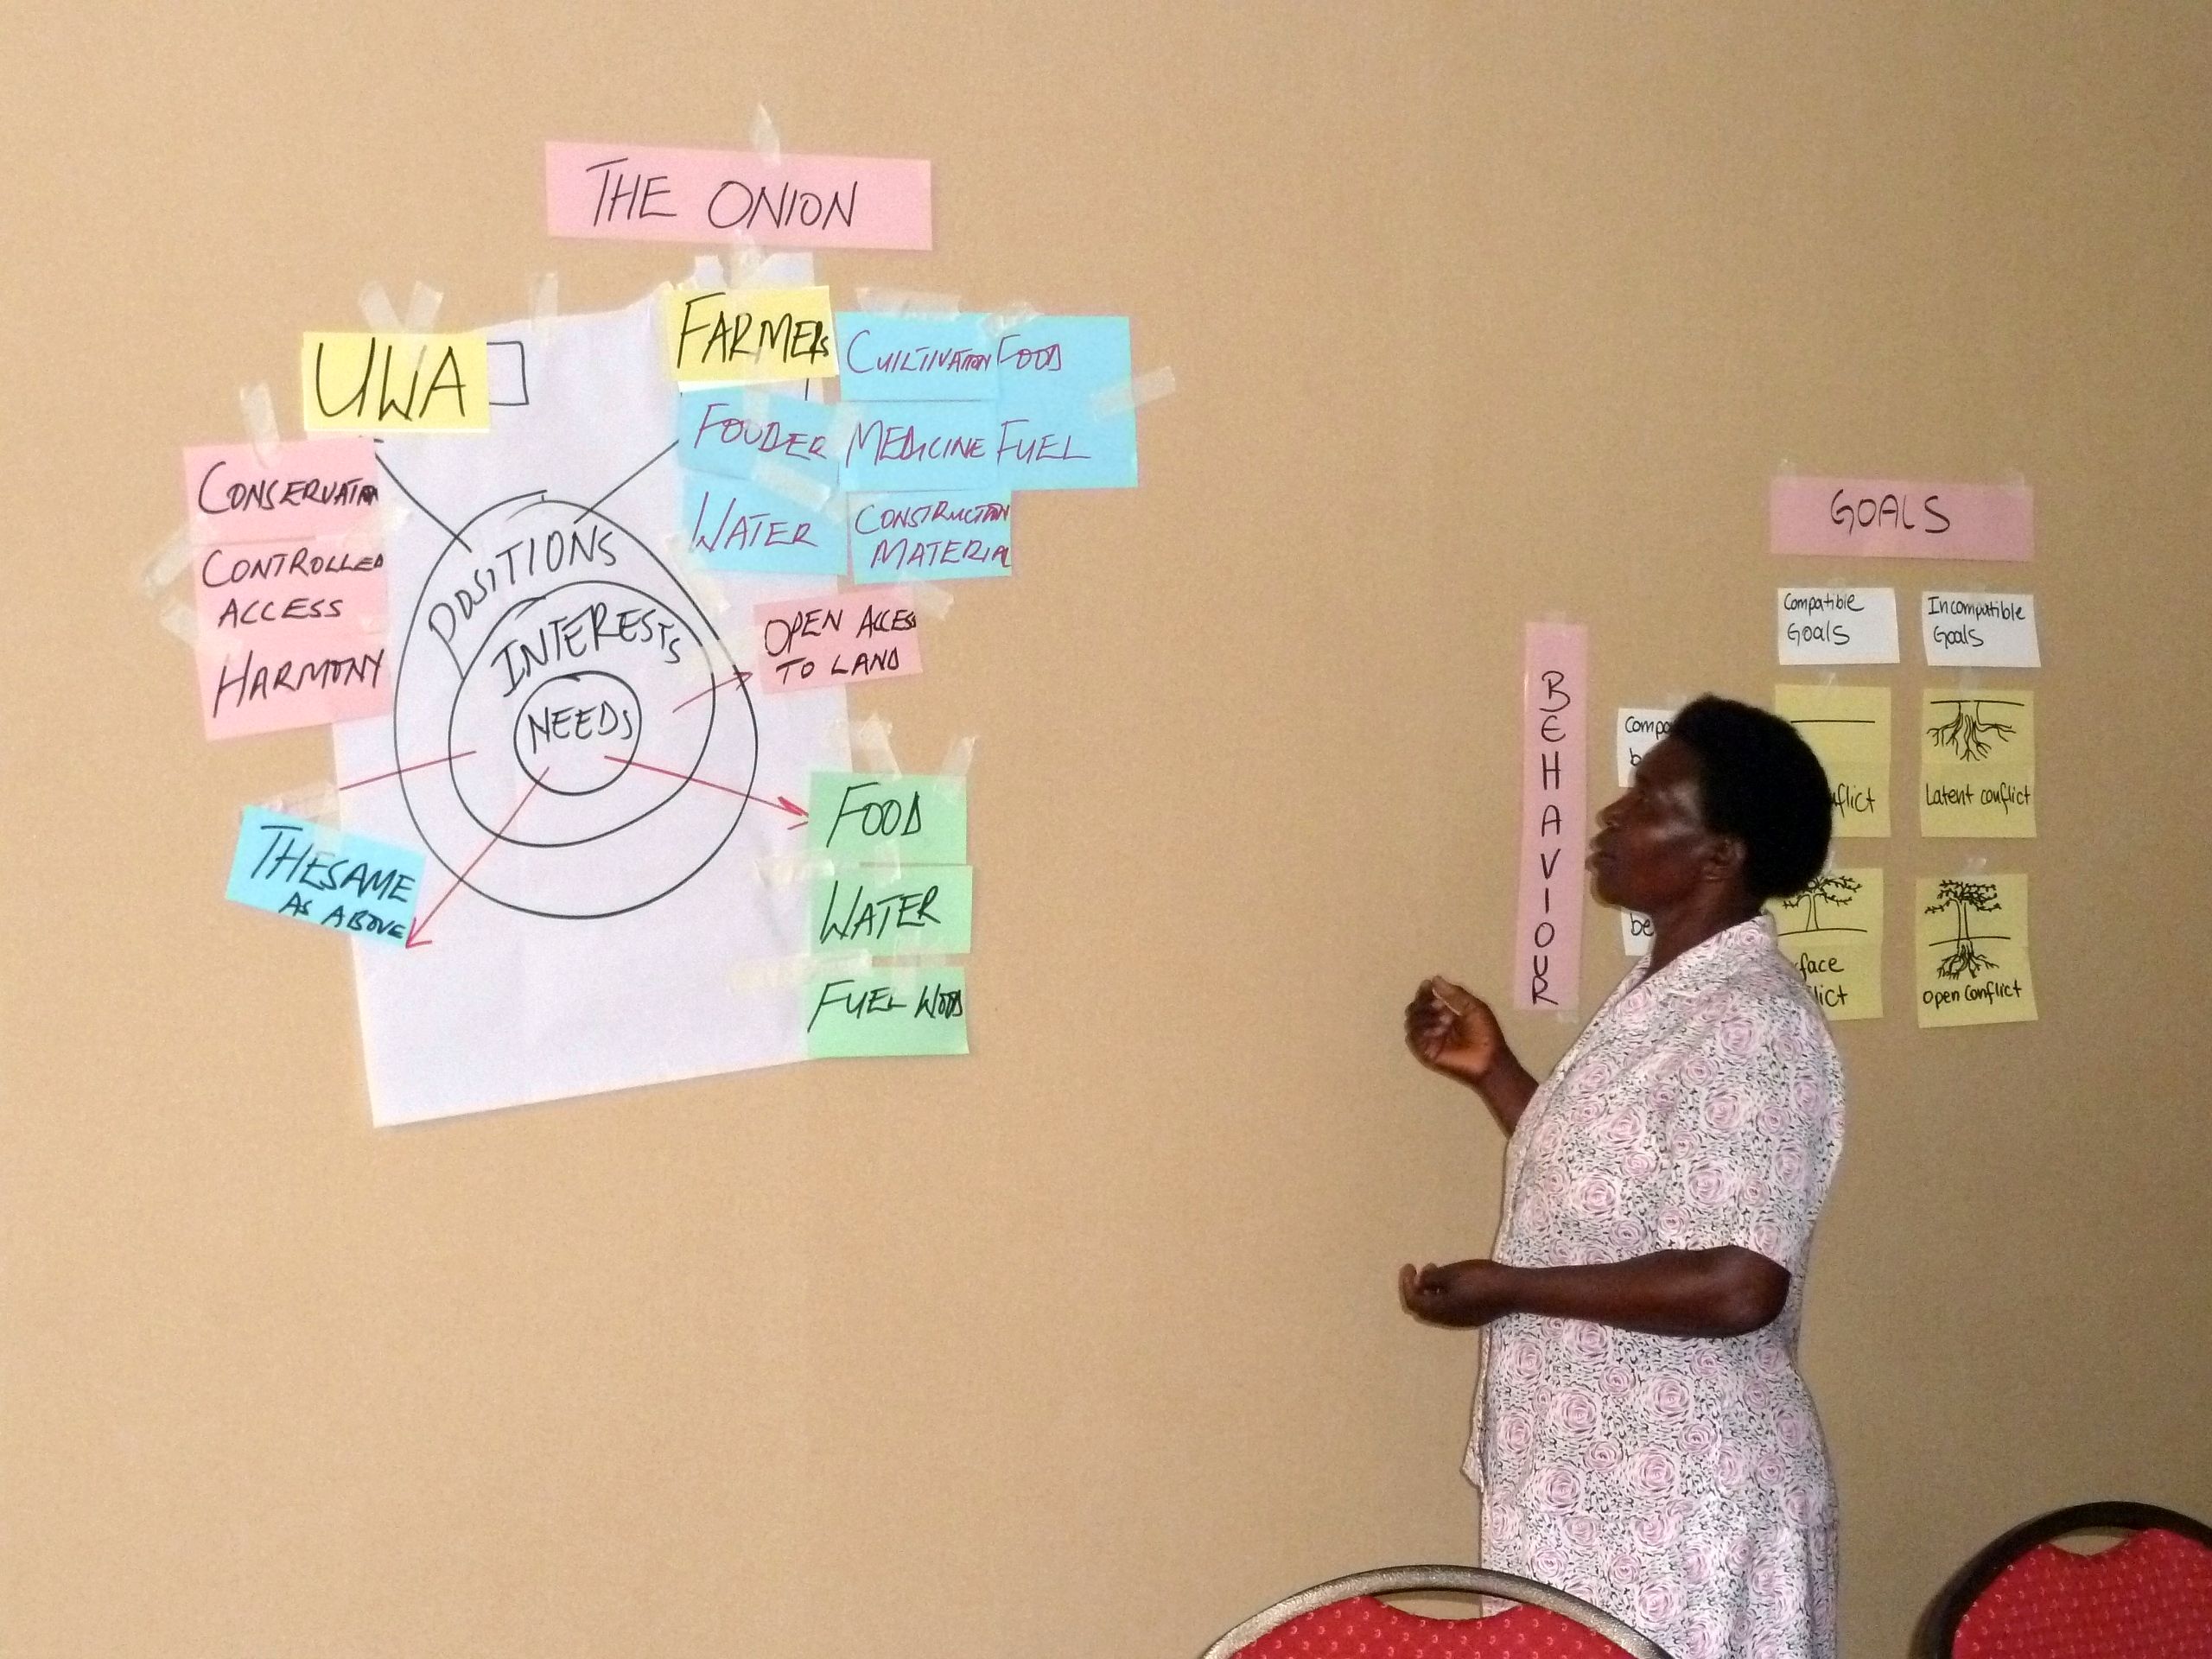 THE ONION
UWA
FARMERS
CUILTIVATION
FOOD
FOUDER
MEDICINE
FUEL
WATER
CONSTRUCTION
MATERIAL
CONSERVATION
CONTROLLED
ACCESS
HARMONY
POSITIONS
INTERESTS
NEEDS
OPEN ACCESS
TO LAND
THESAME
AS ABOVE
FOOD
WATER
FUEL WOOD
GOALS
Compatible
Goals
Incompatible
Goals
BEHAVIOUR
Compa
b
be
flict
Latent conflict
face
lict
Open conflict